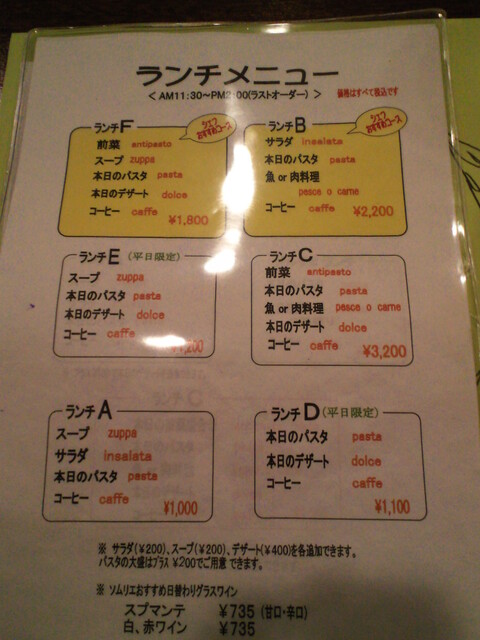 ランチメニュー
< AM11:30~PM2:00(ラストオーダー) >
価格はすべて税込です
ランチF
シェフおすすめコース
前菜 antipasto
スープ zuppa
本日のパスタ pasta
本日のデザート dolce
コーヒー caffe
¥1,800
ランチB
シェフおすすめコース
サラダ insalata
本日のパスタ pasta
魚 or 肉料理
pesce o carne
コーヒー caffe
¥2,200
ランチE (平日限定)
スープ zuppa
本日のパスタ pasta
本日のデザート dolce
コーヒー caffe
¥1,200
ランチC
前菜 antipasto
本日のパスタ pasta
魚 or 肉料理 pesce o carne
本日のデザート dolce
コーヒー caffe
¥3,200
ランチA
スープ zuppa
サラダ insalata
本日のパスタ pasta
コーヒー caffe
¥1,000
ランチD (平日限定)
本日のパスタ pasta
本日のデザート dolce
コーヒー caffe
¥1,100
※ サラダ(¥200)、スープ(¥200)、デザート(¥400)を各追加できます。
パスタの大盛はプラス ¥200でご用意できます。
※ ソムリエおすすめ日替わりグラスワイン
スプマンテ ¥735 (甘口・辛口)
白、赤ワイン ¥735